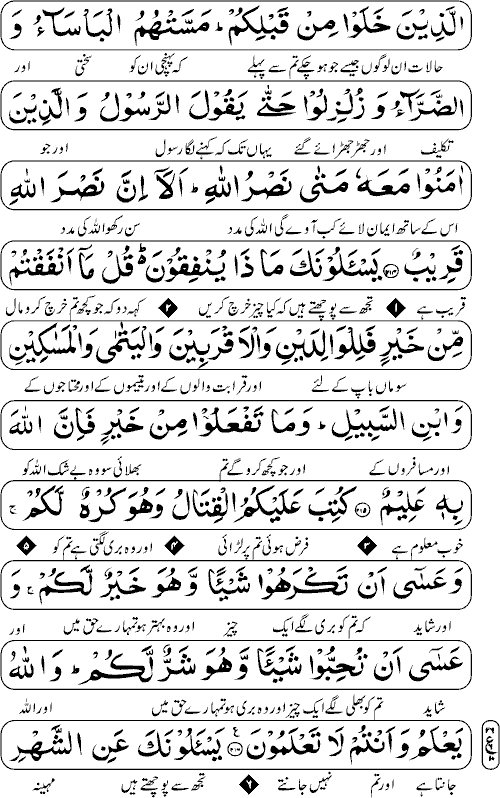 الَّذِیْنَ خَلَوْا مِنْ قَبْلِکُمْ ؕ مَسَّتْهُمُ الْبَاْسَآءُ وَ
حالات ان لوگوں جیسے جو ہو چکے تم سے پہلے کہ پہنچی ان کو سختی اور
الضَّرَّآءُ وَ زُلْزِلُوْا حَتّٰی یَقُوْلَ الرَّسُوْلُ وَ الَّذِیْنَ
تکلیف اور جھڑجھڑائے گئے یہاں تک کہ کہنے لگا رسول اور جو
اٰمَنُوْا مَعَهٗ مَتٰی نَصْرُ اللهِ ؕ اَلَاۤ اِنَّ نَصْرَ اللهِ
اس کے ساتھ ایمان لائے کب آوے گی اللہ کی مدد سن رکھو اللہ کی مدد
قَرِیْبٌ ﴿۲۱۴﴾ یَسْـَٔلُوْنَكَ مَا ذَا یُنْفِقُوْنَ ؕ قُلْ مَاۤ اَنْفَقْتُمْ
قریب ہے ۱ تجھ سے پوچھتے ہیں کہ کیا چیز خرچ کریں ۲ کہہ دو کہ جو کچھ تم خرچ کرو مال
مِّنْ خَیْرٍ فَلِلْوَالِدَیْنِ وَالْاَقْرَبِیْنَ وَالْیَتٰمٰی وَالْمَسٰکِیْنِ
سو ماں باپ کے لئے اور قرابت والوں کے اور یتیموں کے اور محتاجوں کے
وَابْنِ السَّبِیْلِ ؕ وَمَا تَفْعَلُوْا مِنْ خَیْرٍ فَاِنَّ اللهَ
اور مسافروں کے اور جو کچھ کرو گے تم بھلائی سو وہ بے شک اللہ کو
بِهٖ عَلِیْمٌ ﴿۲۱۵﴾ کُتِبَ عَلَیْکُمُ الْقِتَالُ وَهُوَ کُرْهٌ لَّکُمْ ۚ
خوب معلوم ہے ۳ فرض ہوئی تم پر لڑائی ۴ اور وہ بری لگتی ہے تم کو ۵
وَعَسٰۤی اَنْ تَکْرَهُوْا شَیْـًٔا وَّ هُوَ خَیْرٌ لَّکُمْ ۚ وَ
اور شاید کہ تم کو بری لگے ایک چیز اور وہ بہتر ہو تمہارے حق میں اور
عَسٰۤی اَنْ تُحِبُّوْا شَیْـًٔا وَّ هُوَ شَرٌّ لَّکُمْ ؕ وَاللهُ
شاید تم کو بھلی لگے ایک چیز اور وہ بری ہو تمہارے حق میں اور اللہ
یَعْلَمُ وَ اَنْتُمْ لَا تَعْلَمُوْنَ ﴿۲۱۶﴾ یَسْـَٔلُوْنَكَ عَنِ الشَّهْرِ
جانتا ہے اور تم نہیں جانتے ۶ تجھ سے پوچھتے ہیں مہینہ